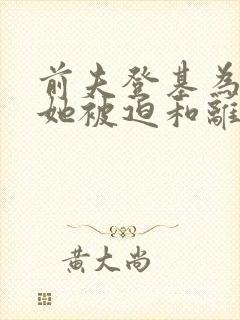 前夫登基為
她被迫和離
黃大尚